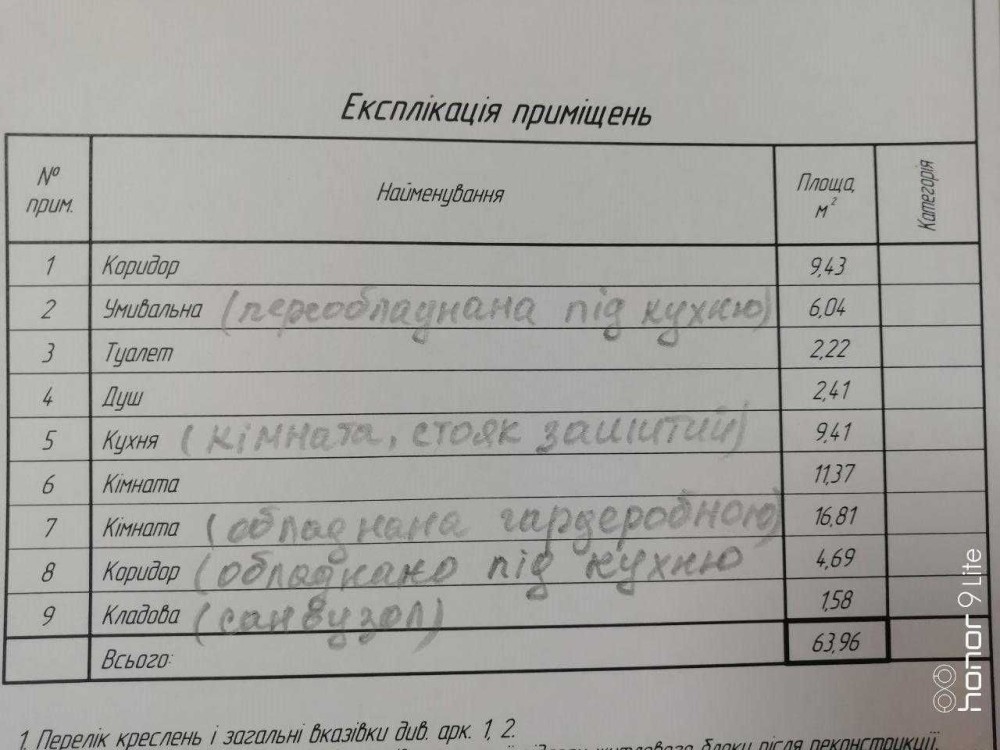 Експлікація приміщень
№ прим. Найменування Площа, м² Категорія
1 Коридор 9,43
2 Умивальна (переобладнана під кухню) 6,04
3 Туалет 2,22
4 Душ 2,41
5 Кухня (кімната, стояк зашитий) 9,41
6 Кімната 11,37
7 Кімната (обладнана гардеробною) 16,81
8 Коридор (обладнано під кухню 4,69
9 Кладова (санвузол) 1,58
Всього: 63,96
1. Перелік креслень і загальні вказівки див. арк. 1, 2.
житлового блоки після реконструкції
honor 9 Lite